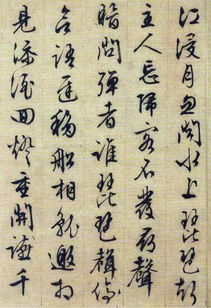 江浸月忽聞水上琵琶聲
主人忘歸客不發尋聲
暗問彈者誰琵琶聲停
欲語遲移船相邀相
見添酒回燈重開宴千